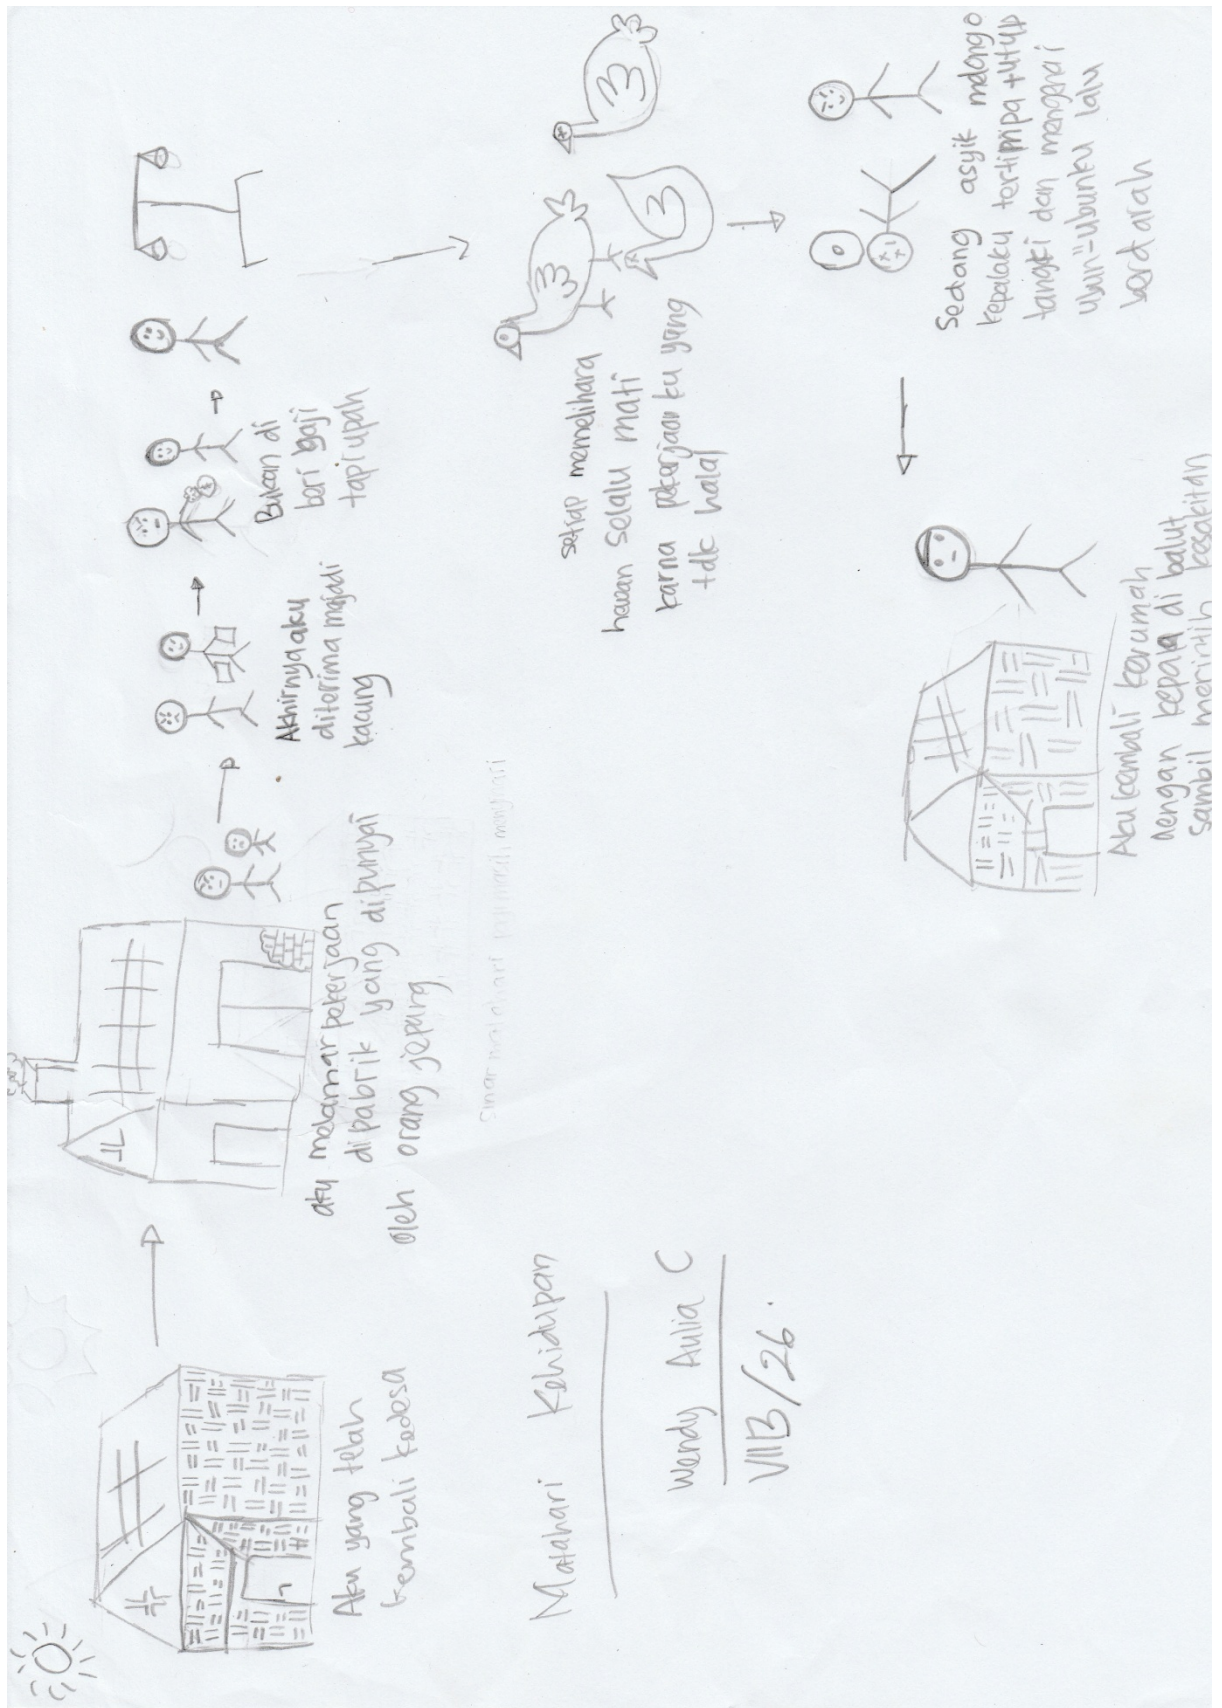 Aku yang telah
kembali kedesa
aku melamar pekerjaan
dipabrik yang dipunyai
oleh orang jepang
Akhirnya aku
diterima mejadi
kacung
Bukan di
beri gaji
tapi upah
setiap memelihara
hewan selalu mati
karna pekerjaan ku yang
tdk halal
3
3
3
Sedang asyik melongo
kepalaku tertimpa tutup
tangki dan mengenai
ubun"-ubunku lalu
berdarah
Aku kembali kerumah
dengan kepala di balut
sambil merintih kesakitan
Matahari Kehidupan
Wendy Aulia C
VIIB/26.